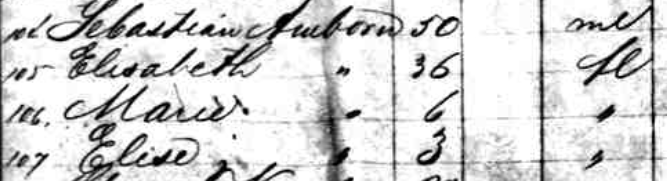 104 Sebastian Amborn 50 ml
105 Elisabeth " 36 fl
106. Marie " 6 "
107 Elise " 3 "